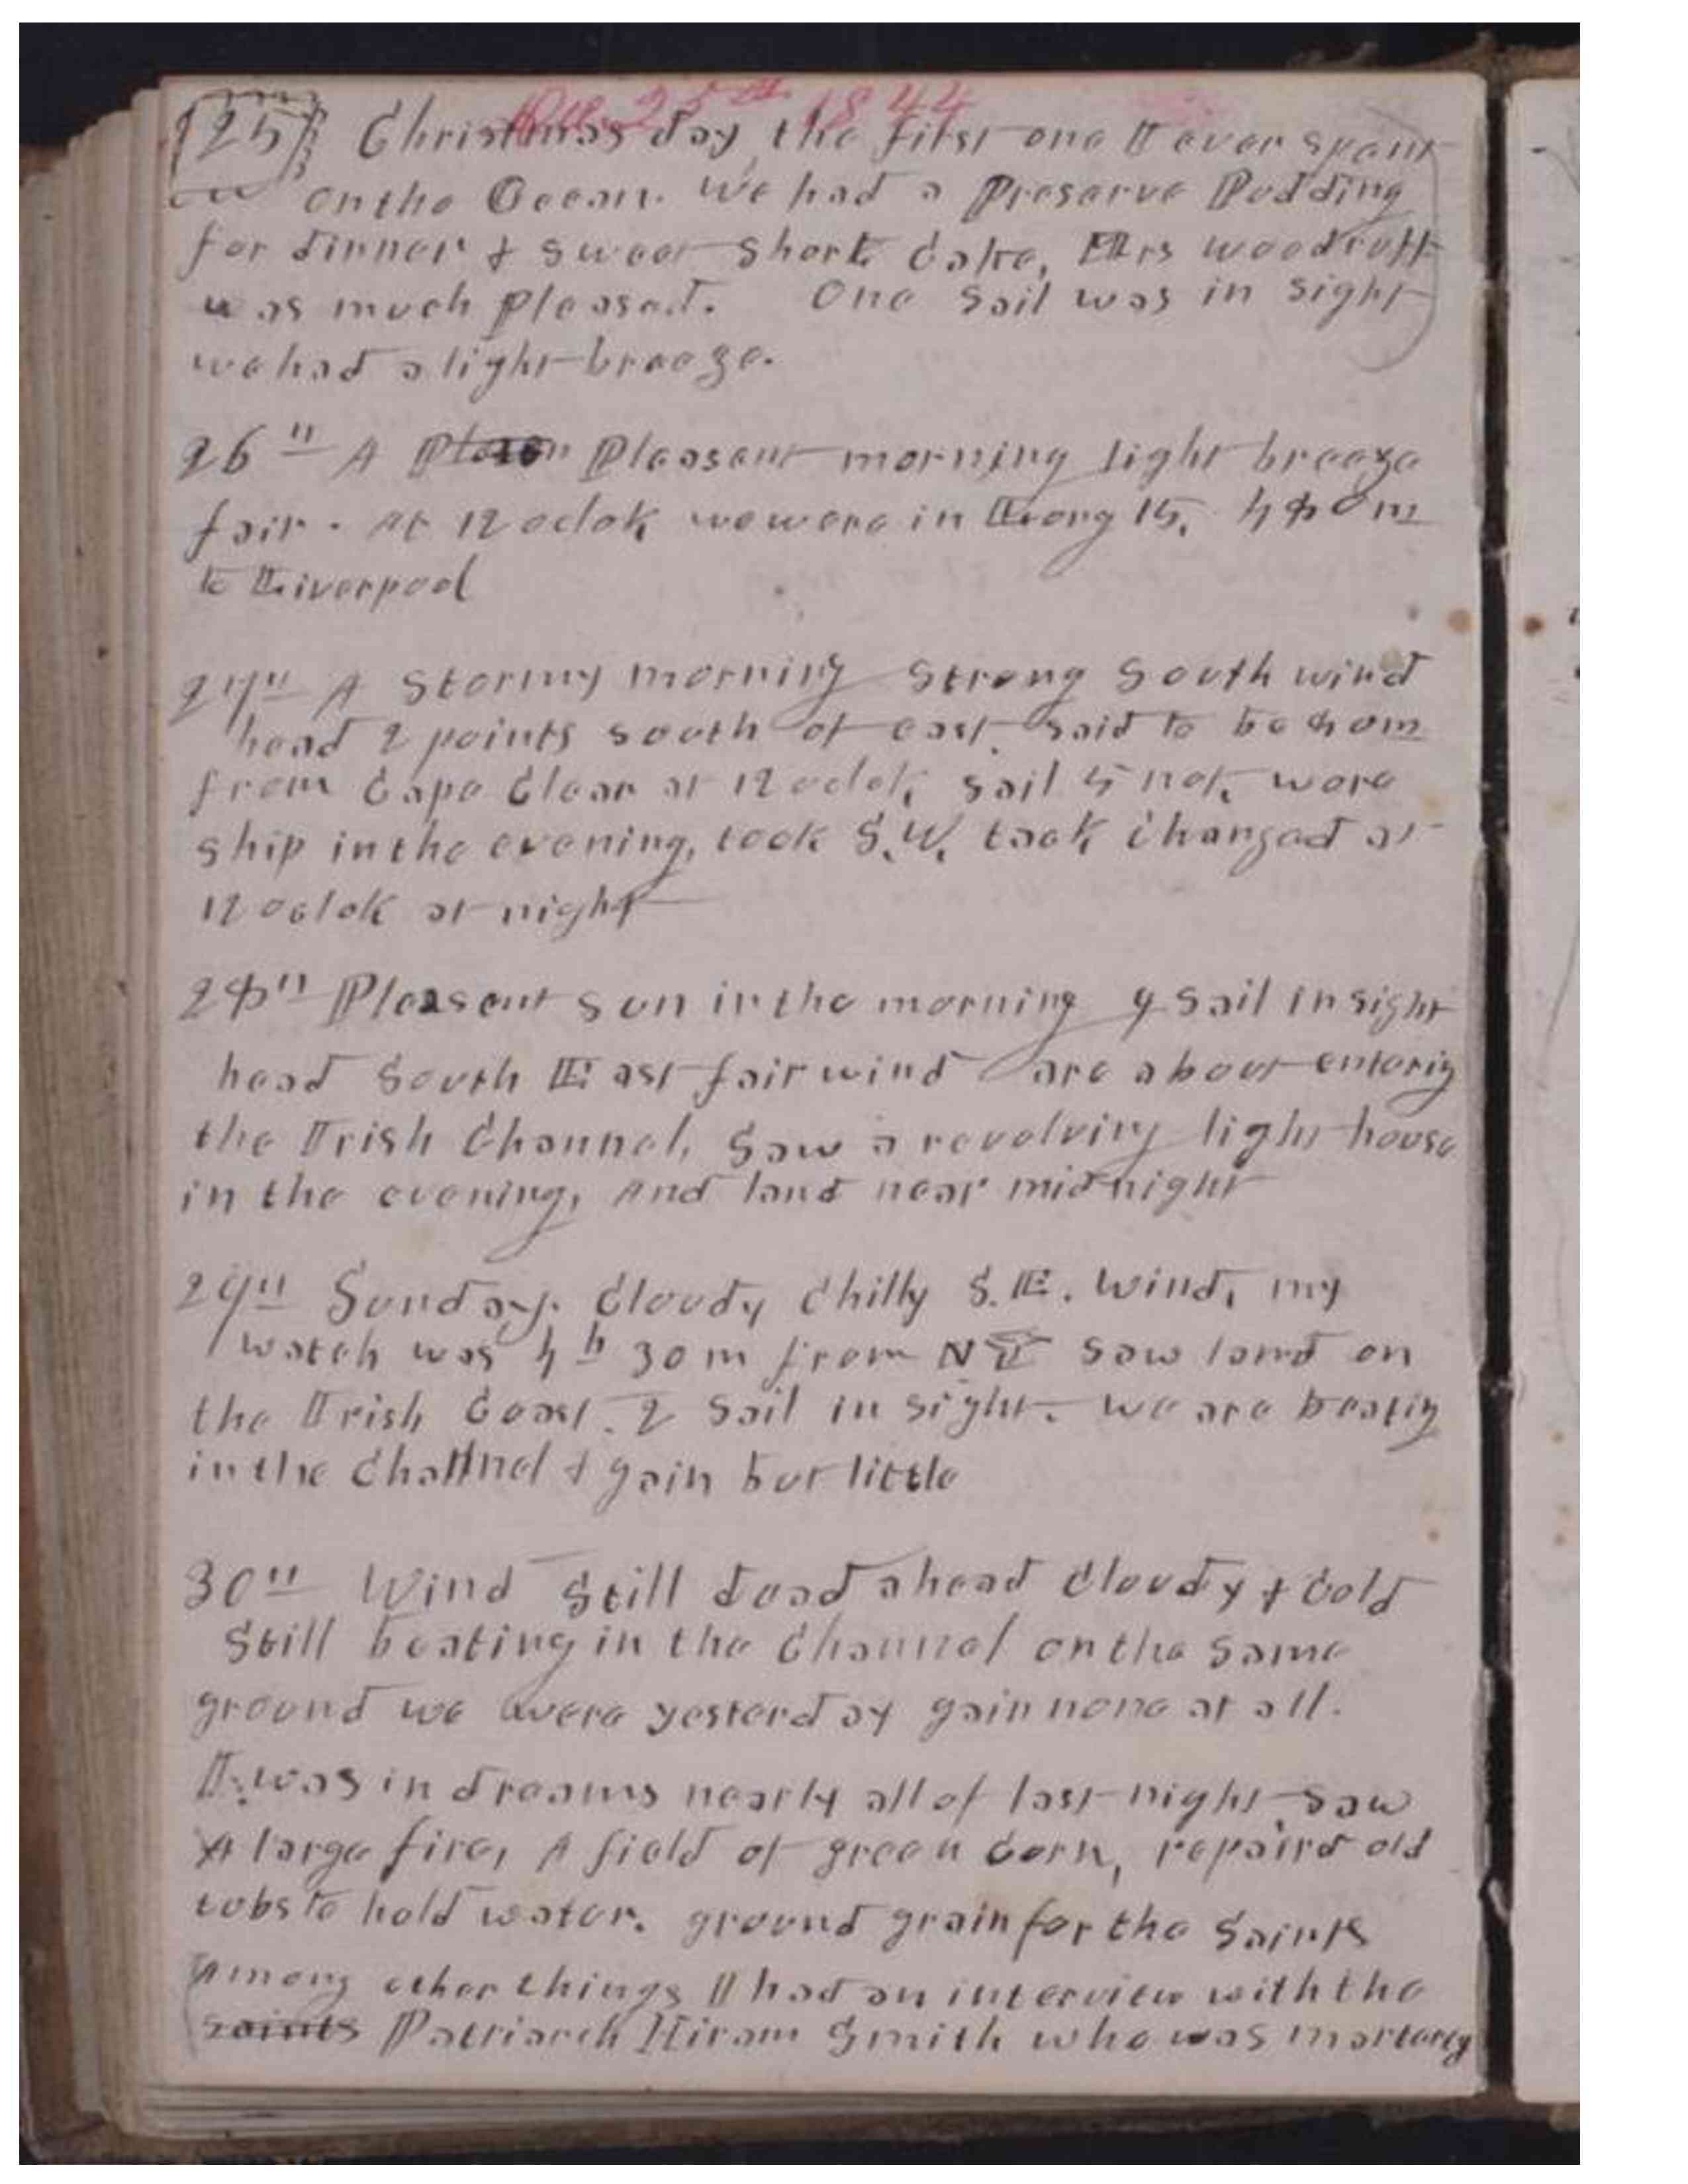 Dec 25th 1844
25 Christmas day, the first one I ever spent
on the Ocean. We had a Preserve Pudding
for dinner & sweet short Cake, Mrs Woodruff
was much pleased. One Sail was in sight
we had a light breeze.
26" A Pleasant morning light breeze
fair. At 12 oclok we were in Long 15,
to Liverpool
27" A Stormy morning Strong South wind
head 2 points south of east. Said to be
from Cape Clear at 12 oclok, sail 5 not, wore
ship in the evening, took S.W. tack Changed at
12 oclok at night
28" Pleasent sun in the morning 9 Sail in sight
head South East fair wind are about enterig
the Irish Channel, Saw a revolving light house
in the evening, And land near midnight
29" Sunday. Cloudy Chilly S.E. Wind, my
watch was 4h 30m from NY Saw land on
the Irish Coast. 2 Sail in sight. we are beatig
in the Channel & gain but little
30" Wind Still dead ahead Cloudy & Cold
Still beating in the Channel on the same
ground we were yesterday gain none at all.
I was in dreams nearly all of last night, saw
A large fire, A field of green Corn, repaird old
tubs to hold water. ground grain for the Saints
Among other things I had an interview with the
saints Patriarch Hiram Smith who was